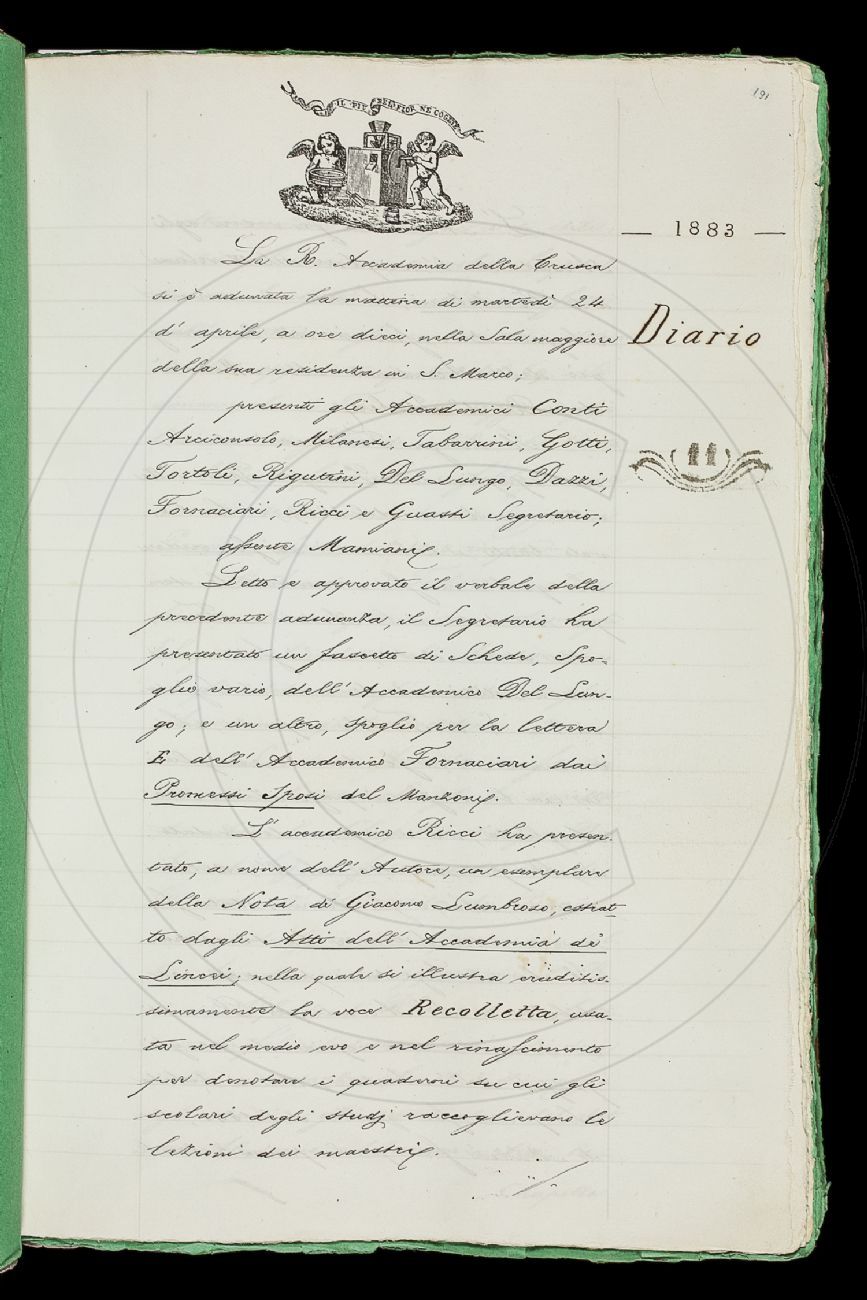 191
IL PIÙ BEL FIOR NE COGLIE
— 1883 —
Diario
11
La R. Accademia della Crusca
si è adunata la mattina di martedì 24
d' aprile, a ore dieci, nella Sala maggiore
della sua residenza in S. Marco;
presenti gli Accademici Conti
Arciconsolo, Milanesi, Tabarrini, Gotti,
Tortoli, Rigutini, Del Lungo, Dazzi,
Fornaciari, Ricci e Guasti Segretario;
assente Mamiani.
Letto e approvato il verbale della
precedente adunanza, il Segretario ha
presentato un fascetto di Schede, Spo-
glio vario, dell' Accademico Del Lun-
go; e un altro, spoglio per la lettera
E dell' Accademico Fornaciari dai
Promessi Sposi del Manzoni.
L' accademico Ricci ha presen-
tato, a nome dell' Autore, un esemplare
della Nota di Giacomo Lumbroso, estrat-
to dagli Atti dell' Accademia de'
Lincei; nella quale si illustra eruditis-
simamente la voce Recolletta, usa-
ta nel medio evo e nel rinascimento
per denotare i quaderni su cui gli
scolari degli studj raccoglievano le
lezioni dei maestri.